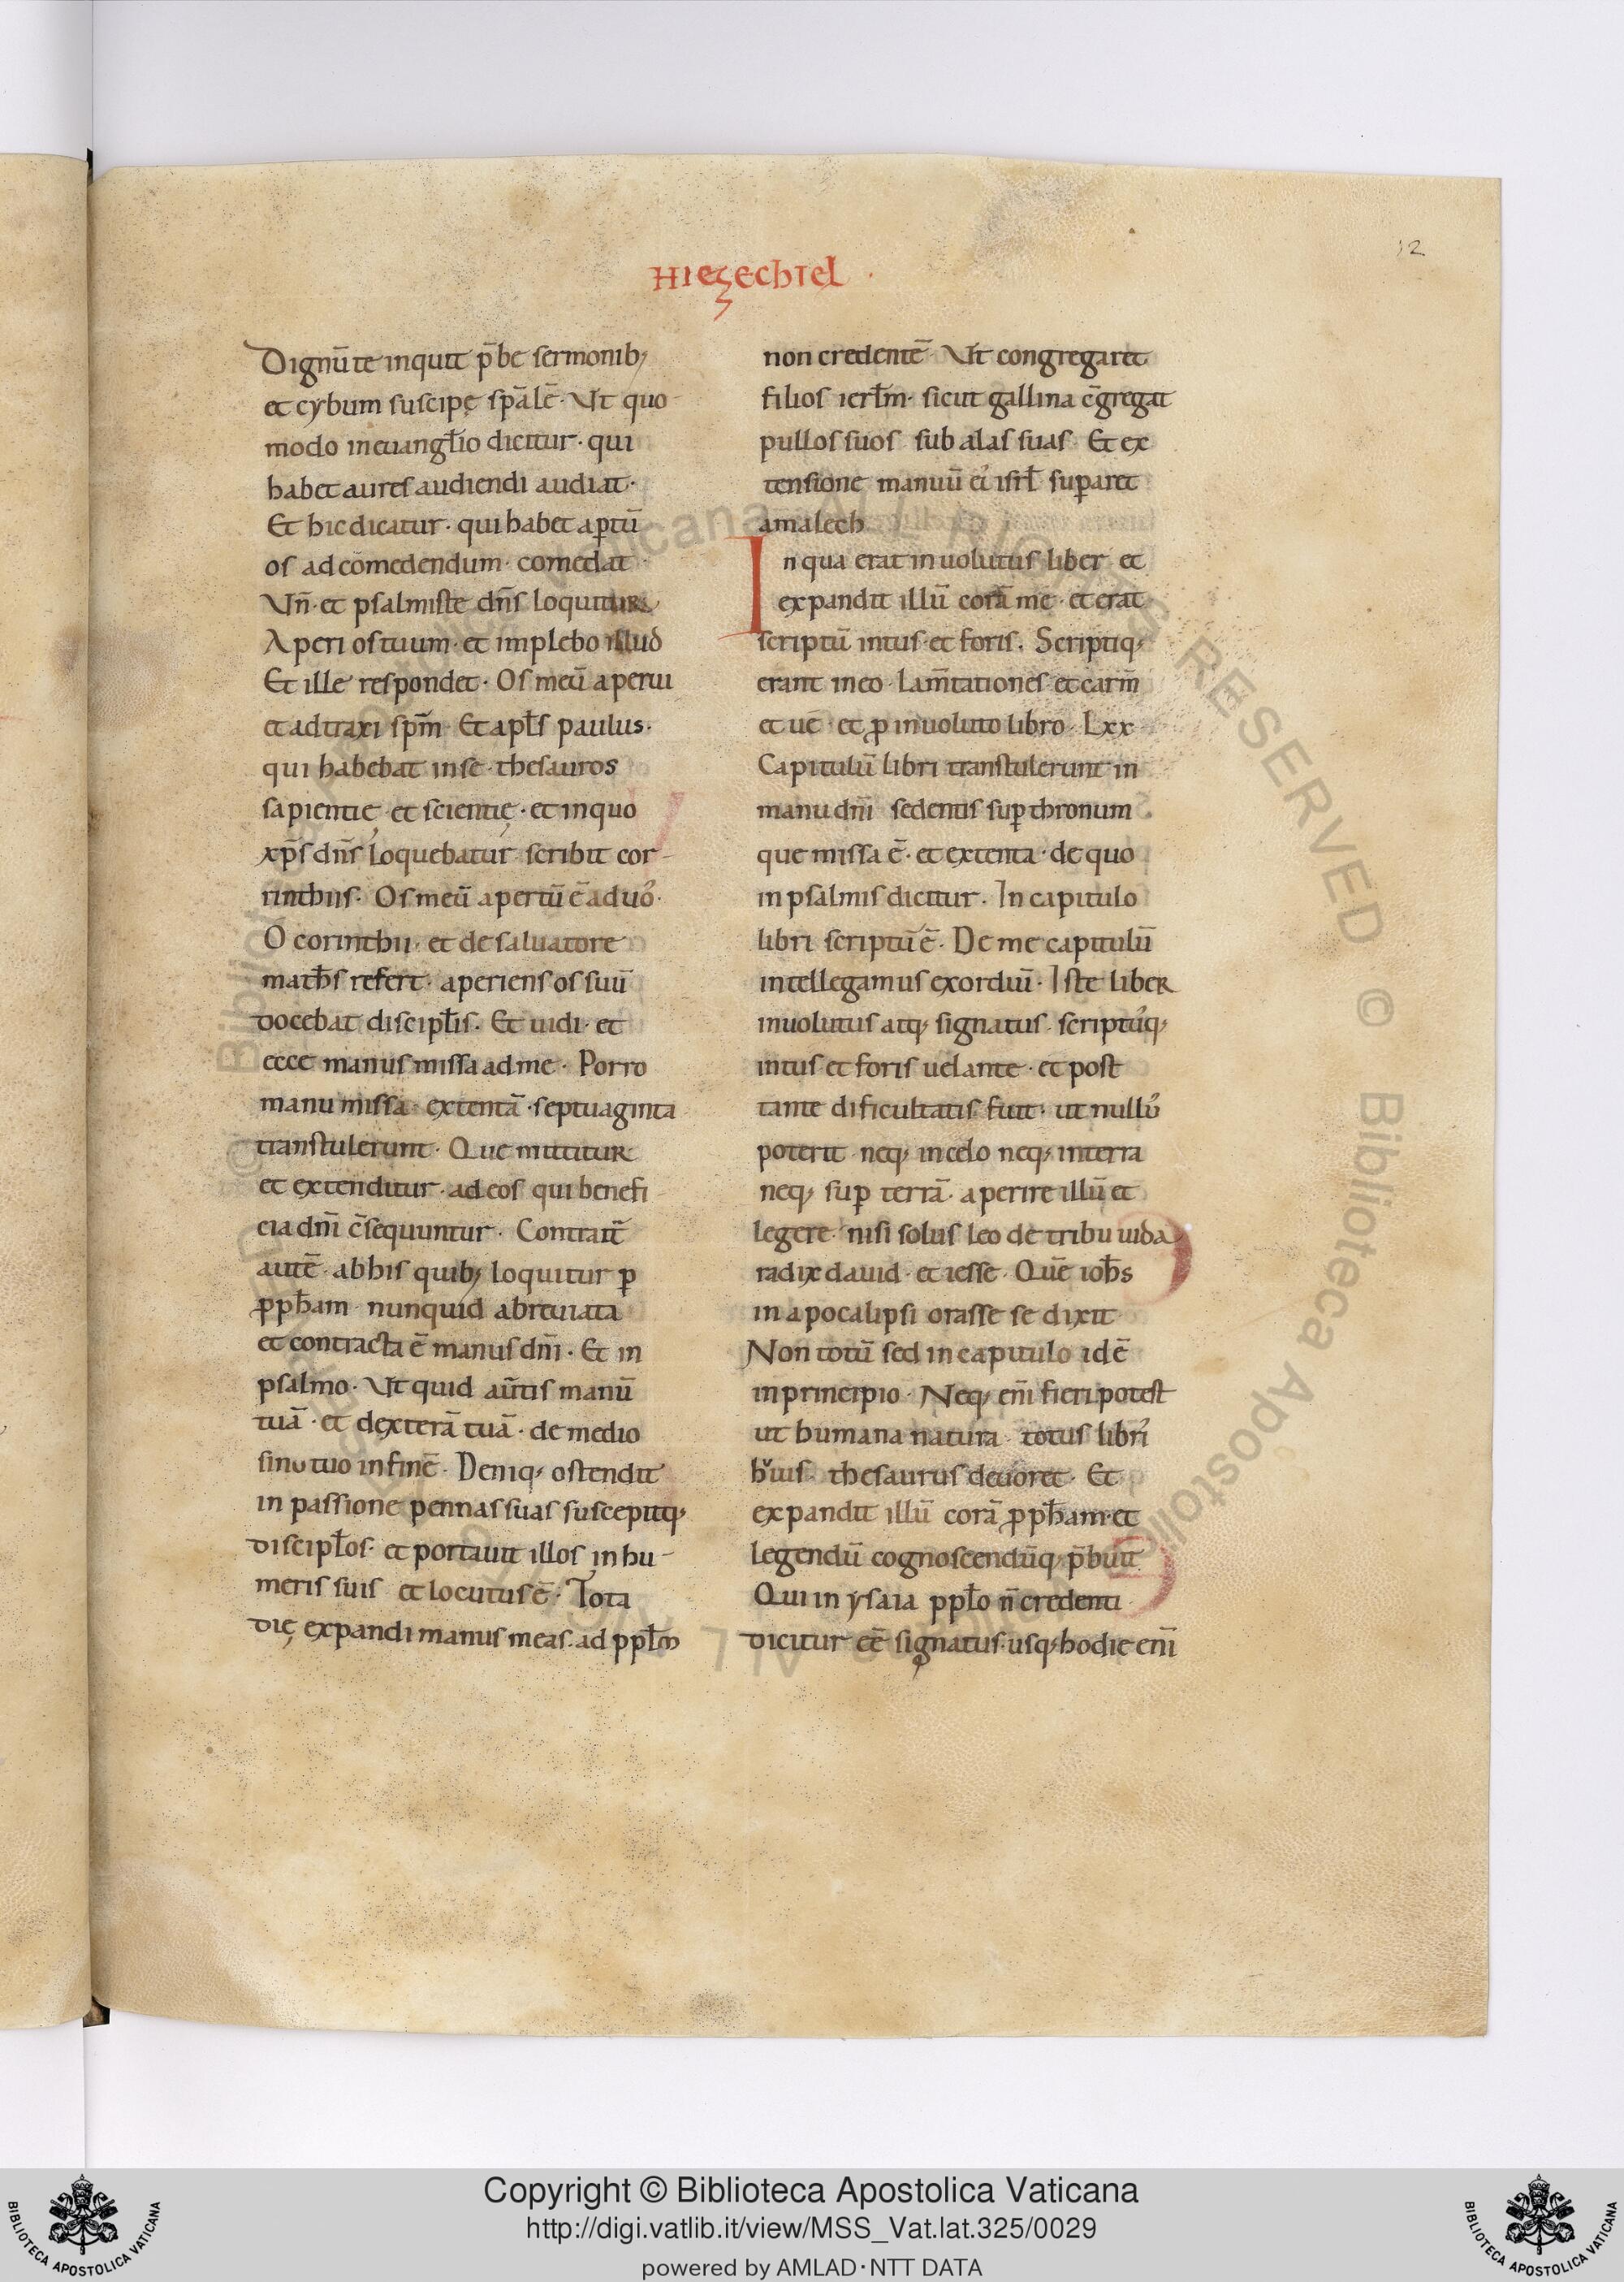 HIEZECHIEL
12
Dignū te inquit p̄be sermonib;
et cybum suscipę sp̄alē· Ut quo
modo in euangł̄io dicitur· qui
habet aures audiendi audiat·
Et hic dicatur· qui habet aꝑtū
os ad cōmedendum· comedat·
Vn̄· et psalmiste dn̄s loquitur
Aperi os tuum· et implebo illud
Et ille respondet· Os meū aperui
et adtraxi sp̄m· Et apł̄s paulus·
qui habebat in se· thesauros
sapientię· et scientię· et in quo
xp̄s dn̄s loquebatur scribit cor-
rinthiis· Os meū apertū ē ad uo᾿·
O corinthii· et de saluatore
math̄s refert· aperiens os suū
docebat discipł̄is· Et uidi· et
ecce manus missa ad me· Porro
manu missa· extentā· septuaginta
transtulerunt· Que mittitur
et extenditur· ad eos qui benefi
cia dn̄i c̄sequuntur· Contrait̄
autē· ab his quib; loquitur ꝑ
ꝓph̄am· nunquid abreuiata
et contracta ē manus dn̄i· Et in
psalmo· Ut quid aūtis manū
tuā· et dexterā tuā· de medio
sinu tuo in finē· Deniq; ostendit
in passione pennas suas suscepitq;
discipł̄os· et portauit illos in hu-
meris suis et locutus ē· Tota
dię expandi manus meas· ad ppł̄m
non credentē· Ut congregaret
filios ierł̄m· sicut gallina c̄gregat
pullos suos sub alas suas· Et ex
tensione manuū ei᾿ isrł̄ suꝑaret
amalech
In qua erat inuolutus liber et
expandit illū corā me· et erat
scriptū intus et foris· Scriptiq;
erant in eo· lam̄tationes et carm̄
et ue· et ꝓ inuoluto libro· Lxx
Capitulū libri transtulerunt in
manu dn̄i sedentis suꝑ thronum
que missa ē· et extenta· de quo
in psalmis dicitur· In capitulo
libri scriptū ē· De me capitulū
intellegamus exordiū· Iste liber
inuolutus atq; signatus· script᾿q;
intus et foris uelante· et post
tante dificultatis fuit· ut null᾿
poterit· neq; in celo neq; in terra
neq; suꝑ terrā· aperire illū et
legere· nisi solus leo de tribu iuda
radix dauid· et iesse· Quē ioh̄s
in apocalipsi orasse se dixit
Non totū sed in capitulo id ē
in principio· Neq; eni̅ fieri potest
ut humana natura totus libri᾿
h᾿uis· thesaurus deuoret· Et
expandit illū corā ꝓph̄am· et
legendū cognoscendūq; p̄buit
Qui in ysaia ppł̄o n̄ credenti
dicitur eē signatus· usq; hodie eni̅
Copyright © Biblioteca Apostolica Vaticana
http://digi.vatlib.it/view/MSS_Vat.lat.325/0029
powered by AMLAD·NTT DATA
BIBLIOTECA APOSTOLICA VATICANA
BIBLIOTECA APOSTOLICA VATICANA